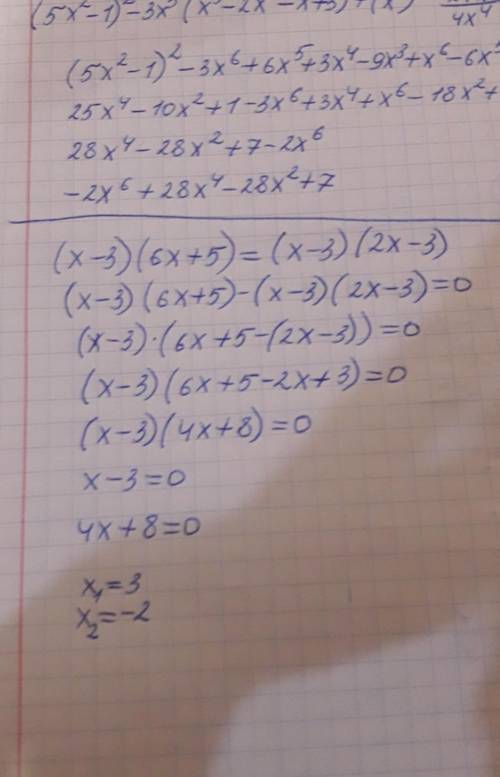 (5x²-1)²-3x³(x³-2x²-x+3)+(x)
4x⁴
(5x²-1)²-3x⁶+6x⁵+3x⁴-9x³+x⁶-6x⁵
25x⁴-10x²+1-3x⁶+3x⁴+x⁶-18x²+
28x⁴-28x²+7-2x⁶
-2x⁶+28x⁴-28x²+7
(x-3)(6x+5)=(x-3)(2x-3)
(x-3)(6x+5)-(x-3)(2x-3)=0
(x-3)·(6x+5-(2x-3))=0
(x-3)(6x+5-2x+3)=0
(x-3)(4x+8)=0
x-3=0
4x+8=0
x₁=3
x₂=-2